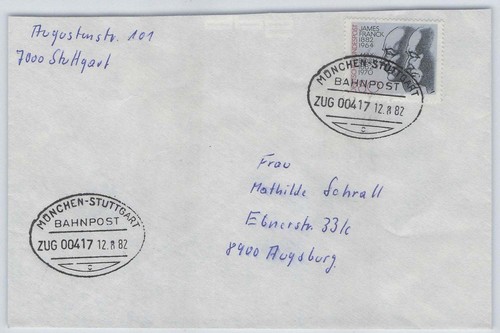 Augustenstr. 101
7000 Stuttgart
JAMES
FRANCK
1882
1964
1970
MÜNCHEN-STUTTGART
BAHNPOST
ZUG 00417 12.8.82
c
Frau
Mathilde Schrall
Ebnerstr. 33/c
8900 Augsburg
MÜNCHEN-STUTTGART
BAHNPOST
ZUG 00417 12.8.82
c